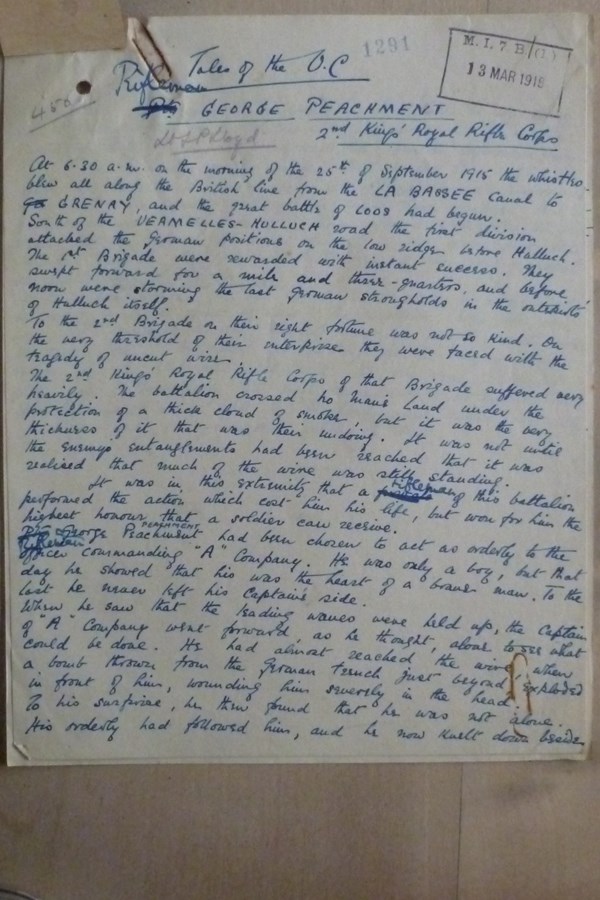 1291
M.I.7 B/(1.)
13 MAR 1918
Tales of the V.C
Rifleman
GEORGE PEACHMENT
2nd Kings' Royal Rifle Corps
At 6.30 a.m. on the morning of the 25th of September 1915 the whistles
blew all along the British line from the LA BASSEE Canal to
GRENAY, and the great battle of LOOS had begun.
South of the VERMELLES-HULLUCH road the first division
attacked the German positions on the low ridge before Hulluch.
The 1st Brigade were rewarded with instant success. They
swept forward for a mile and three-quarters, and before
noon were storming the last German strongholds in the outskirts
of Hulluch itself.
To the 2nd Brigade on their right fortune was not so kind. On
the very threshold of their enterprise they were faced with the
tragedy of uncut wire.
The 2nd Kings' Royal Rifle Corps of that Brigade suffered very
heavily. The battalion crossed No Man's Land under the
protection of a thick cloud of smoke, but it was the very
thickness of it that was their undoing. It was not until
the enemy's entanglements had been reached that it was
realised that much of the wire was still standing.
It was in this extremity that a rifleman of this battalion
performed the action which cost him his life, but won for him the
highest honour that a soldier can receive.
Rifleman George Peachment had been chosen to act as orderly to the
PEACHMENT
officer commanding "A" Company. He was only a boy, but that
day he showed that his was the heart of a brave man. To the
last he never left his Captain's side.
When he saw that the leading waves were held up, the Captain
of "A" Company went forward, as he thought, alone to see what
could be done. He had almost reached the wire when
a bomb thrown from the German trench just beyond exploded
in front of him, wounding him severely in the head.
To his surprise, he then found that he was not alone.
His orderly had followed him, and he now knelt down beside